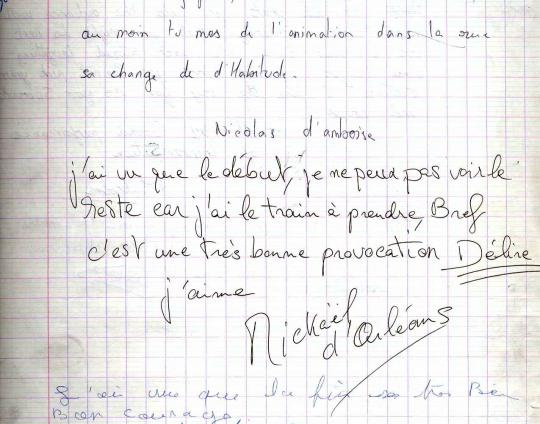 au moin tu mes de l'animation dans la rue
sa change de d'Habitude.
Nicolas d'amboise
j'ai vu que le début, je ne peux pas voir le
reste car j'ai le train à prendre, Bref
c'est une très bonne provocation Délire
j'aime
Mickaël
d'Orléans
J'ai vue que la fin sa tres Bien
Bon courage,